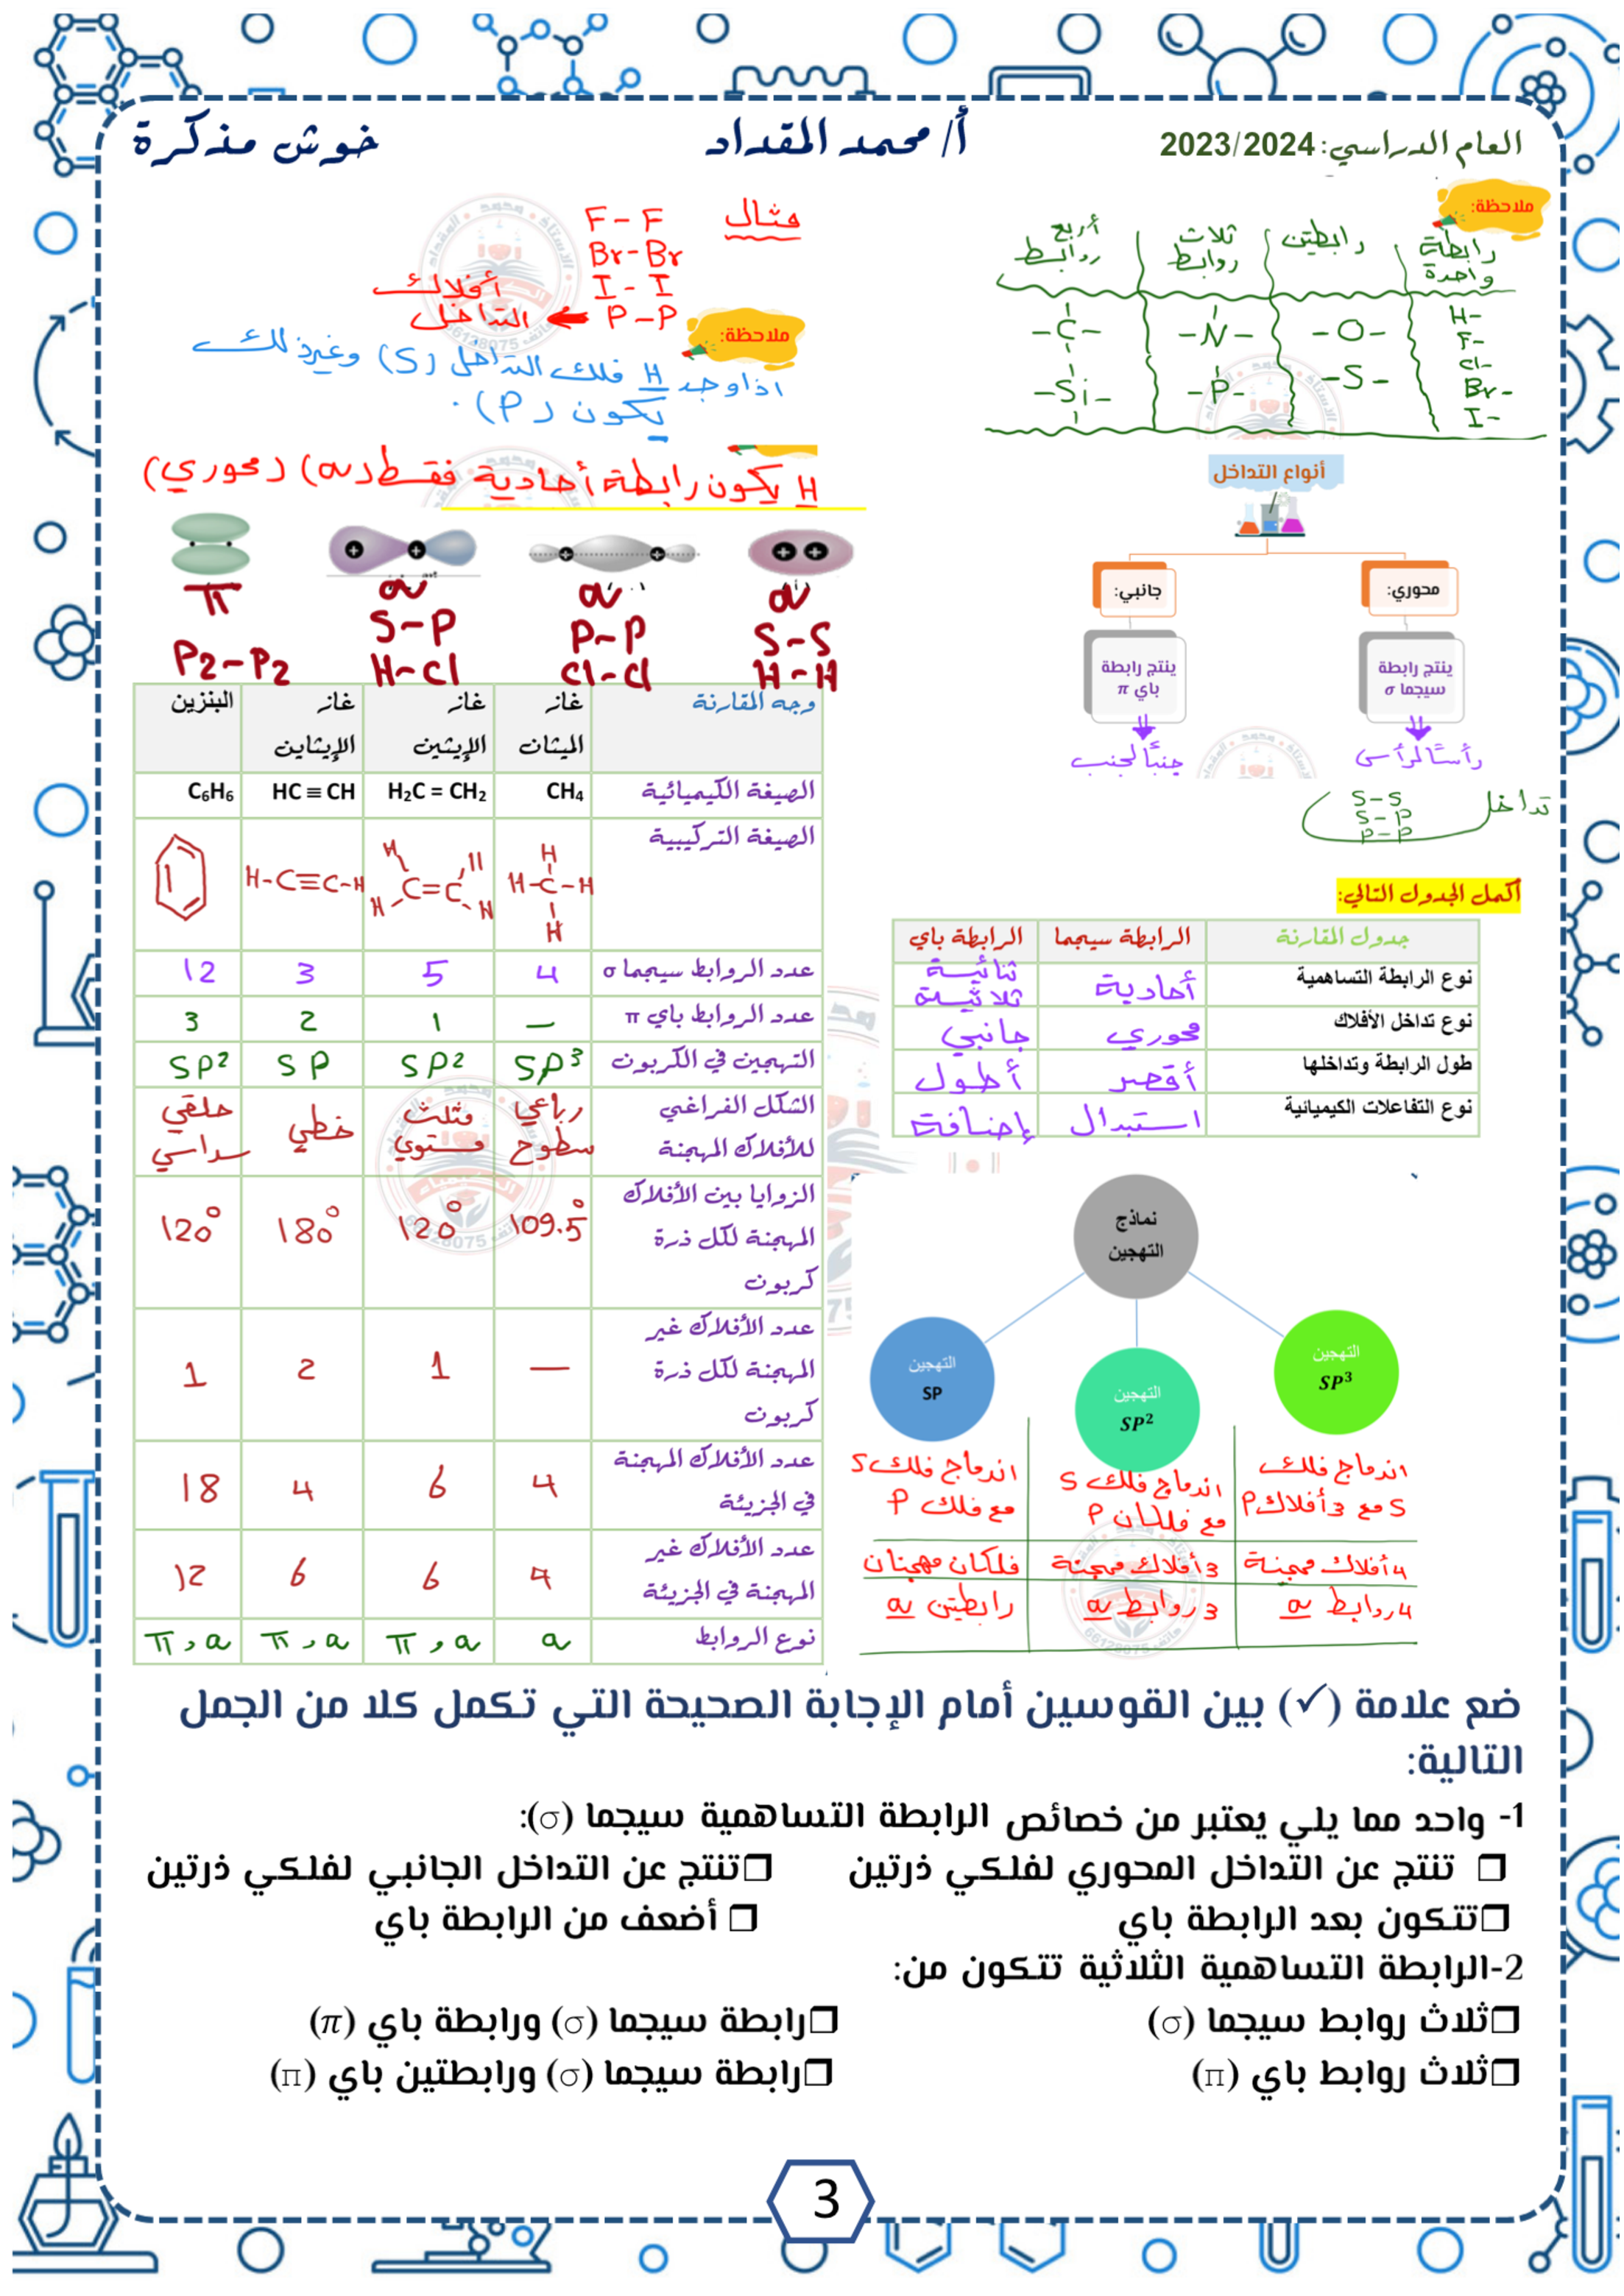 العام الدراسي: 2023/2024
أ/ محمد المقداد
خوش مذكرة
ملاحظة:
رابطة واحدة
رابطتين
ثلاث روابط
أربع روابط
H-
F-
Cl-
Br-
I-
-O-
-S-
-N-
-P-
-C-
-Si-
مثال
F-F
Br-Br
I-I
P-P ← أفلاك التداخل
ملاحظة:
اذا وجد H فلك التداخل (S) وغير ذلك
يكون (P).
H يكون رابطة أحادية فقط (σ) (محوري)
أنواع التداخل
محوري:
ينتج رابطة سيجما σ
رأساً لرأس
جانبي:
ينتج رابطة باي π
جنباً لجنب
تداخل
S-S
S-P
P-P
σ
S-S
H-H
σ
P-P
Cl-Cl
σ
S-P
H-Cl
π
P2-P2
وجه المقارنة غاز الميثان غاز الإيثين غاز الإيثاين البنزين
الصيغة الكيميائية CH₄ H₂C = CH₂ HC ≡ CH C₆H₆
الصيغة التركيبية
H
H-C-H
H
H H
C=C
H H
H-C≡C-H
عدد الروابط سيجما σ 4 5 3 12
عدد الروابط باي π — 1 2 3
التهجين في الكربون SP³ SP² SP SP²
الشكل الفراغي للأفلاك المهجنة رباعي سطوح مثلث مستوي خطي حلقي سداسي
الزوايا بين الأفلاك المهجنة لكل ذرة كربون 109.5° 120° 180° 120°
عدد الأفلاك غير المهجنة لكل ذرة كربون — 1 2 1
عدد الأفلاك المهجنة في الجزيئة 4 6 4 18
عدد الأفلاك غير المهجنة في الجزيئة 4 6 6 12
نوع الروابط σ σ , π σ , π σ , π
أكمل الجدول التالي:
جدول المقارنة الرابطة سيجما الرابطة باي
نوع الرابطة التساهمية أحادية ثنائية ثلاثية
نوع تداخل الأفلاك محوري جانبي
طول الرابطة وتداخلها أقصر أطول
نوع التفاعلات الكيميائية استبدال إضافة
نماذج التهجين
التهجين SP³
التهجين SP²
التهجين SP
اندماج فلك S مع 3 أفلاك P
اندماج فلك S مع فلكان P
اندماج فلك S مع فلك P
4 أفلاك مهجنة
3 أفلاك مهجنة
فلكان مهجنان
4 روابط σ
3 روابط σ
رابطتين σ
ضع علامة (✓) بين القوسين أمام الإجابة الصحيحة التي تكمل كلا من الجمل
التالية:
1- واحد مما يلي يعتبر من خصائص الرابطة التساهمية سيجما (σ):
❒ تنتج عن التداخل المحوري لفلكي ذرتين ❒تنتج عن التداخل الجانبي لفلكي ذرتين
❒تتكون بعد الرابطة باي ❒ أضعف من الرابطة باي
2-الرابطة التساهمية الثلاثية تتكون من:
❒ثلاث روابط سيجما (σ) ❒رابطة سيجما (σ) ورابطة باي (π)
❒ثلاث روابط باي (π) ❒رابطة سيجما (σ) ورابطتين باي (π)
3